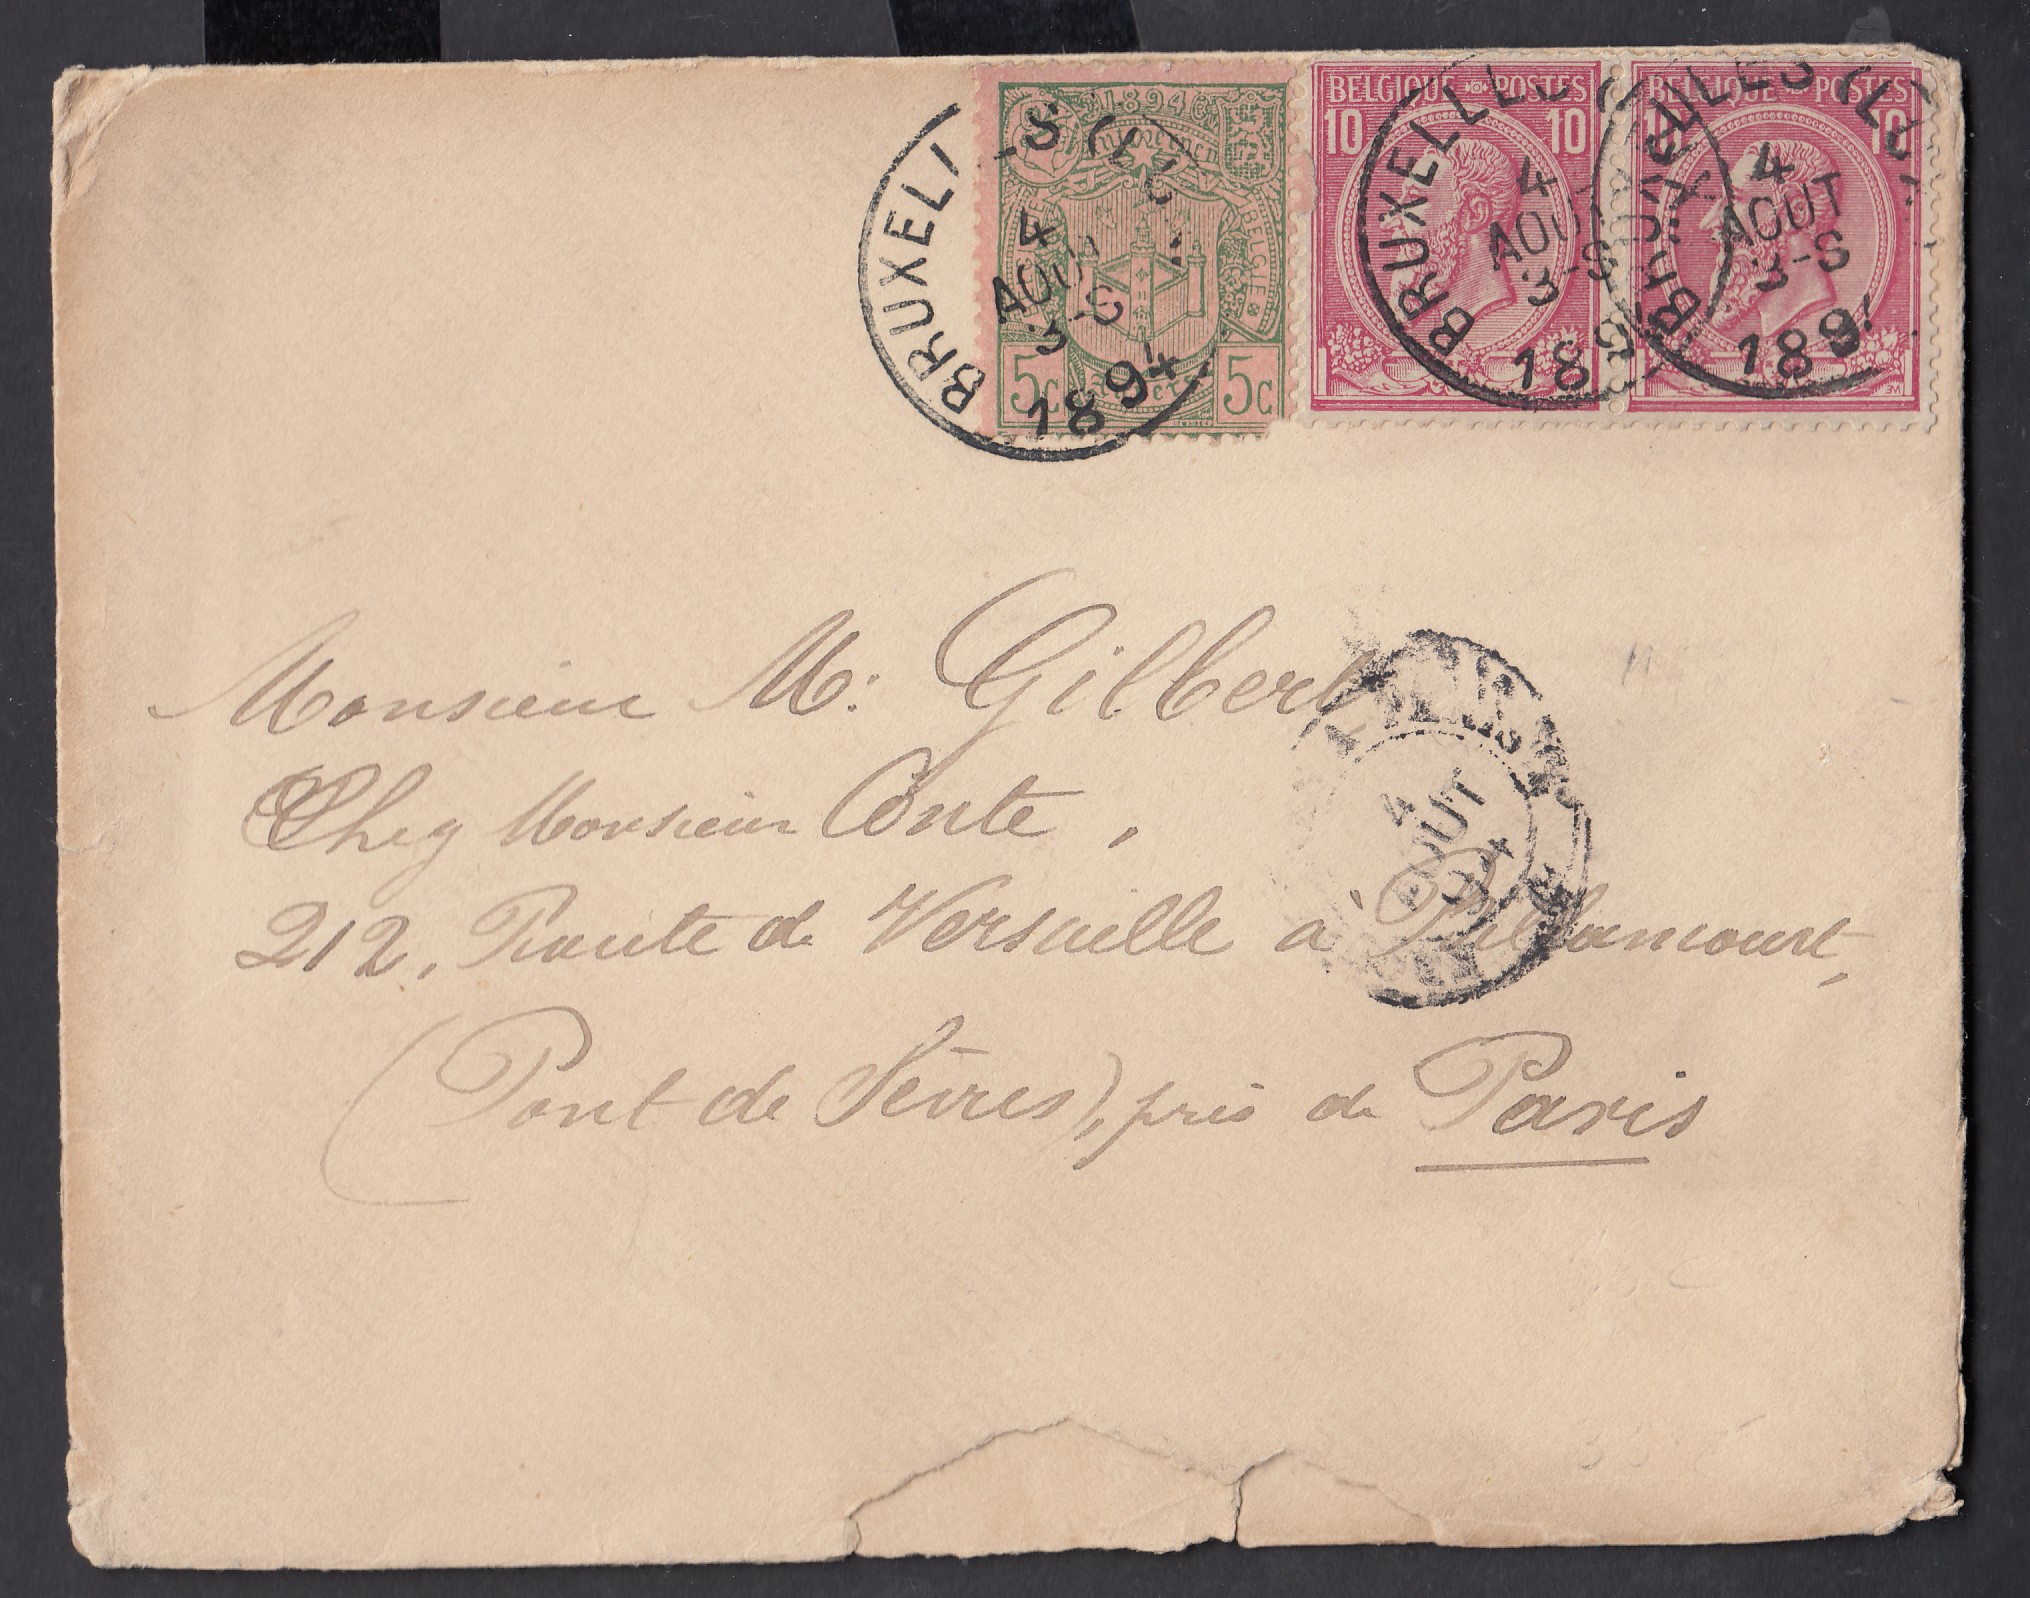 1894
ANVERS
BELGIE
5c 5c
BELGIQUE POSTES
10 10
BELGIQUE POSTES
10 10
BRUXELLES
4
AOUT
3-S
1894
BRUXELLES
4
AOUT
3-S
18
BRUXELLES
4
AOUT
3-S
189
Monsieur M: Gilbert
Chez Monsieur Conte,
212, Route de Versaille à Billancourt,
(Pont de Sèvres), près de Paris
PARIS
4
AOUT
94